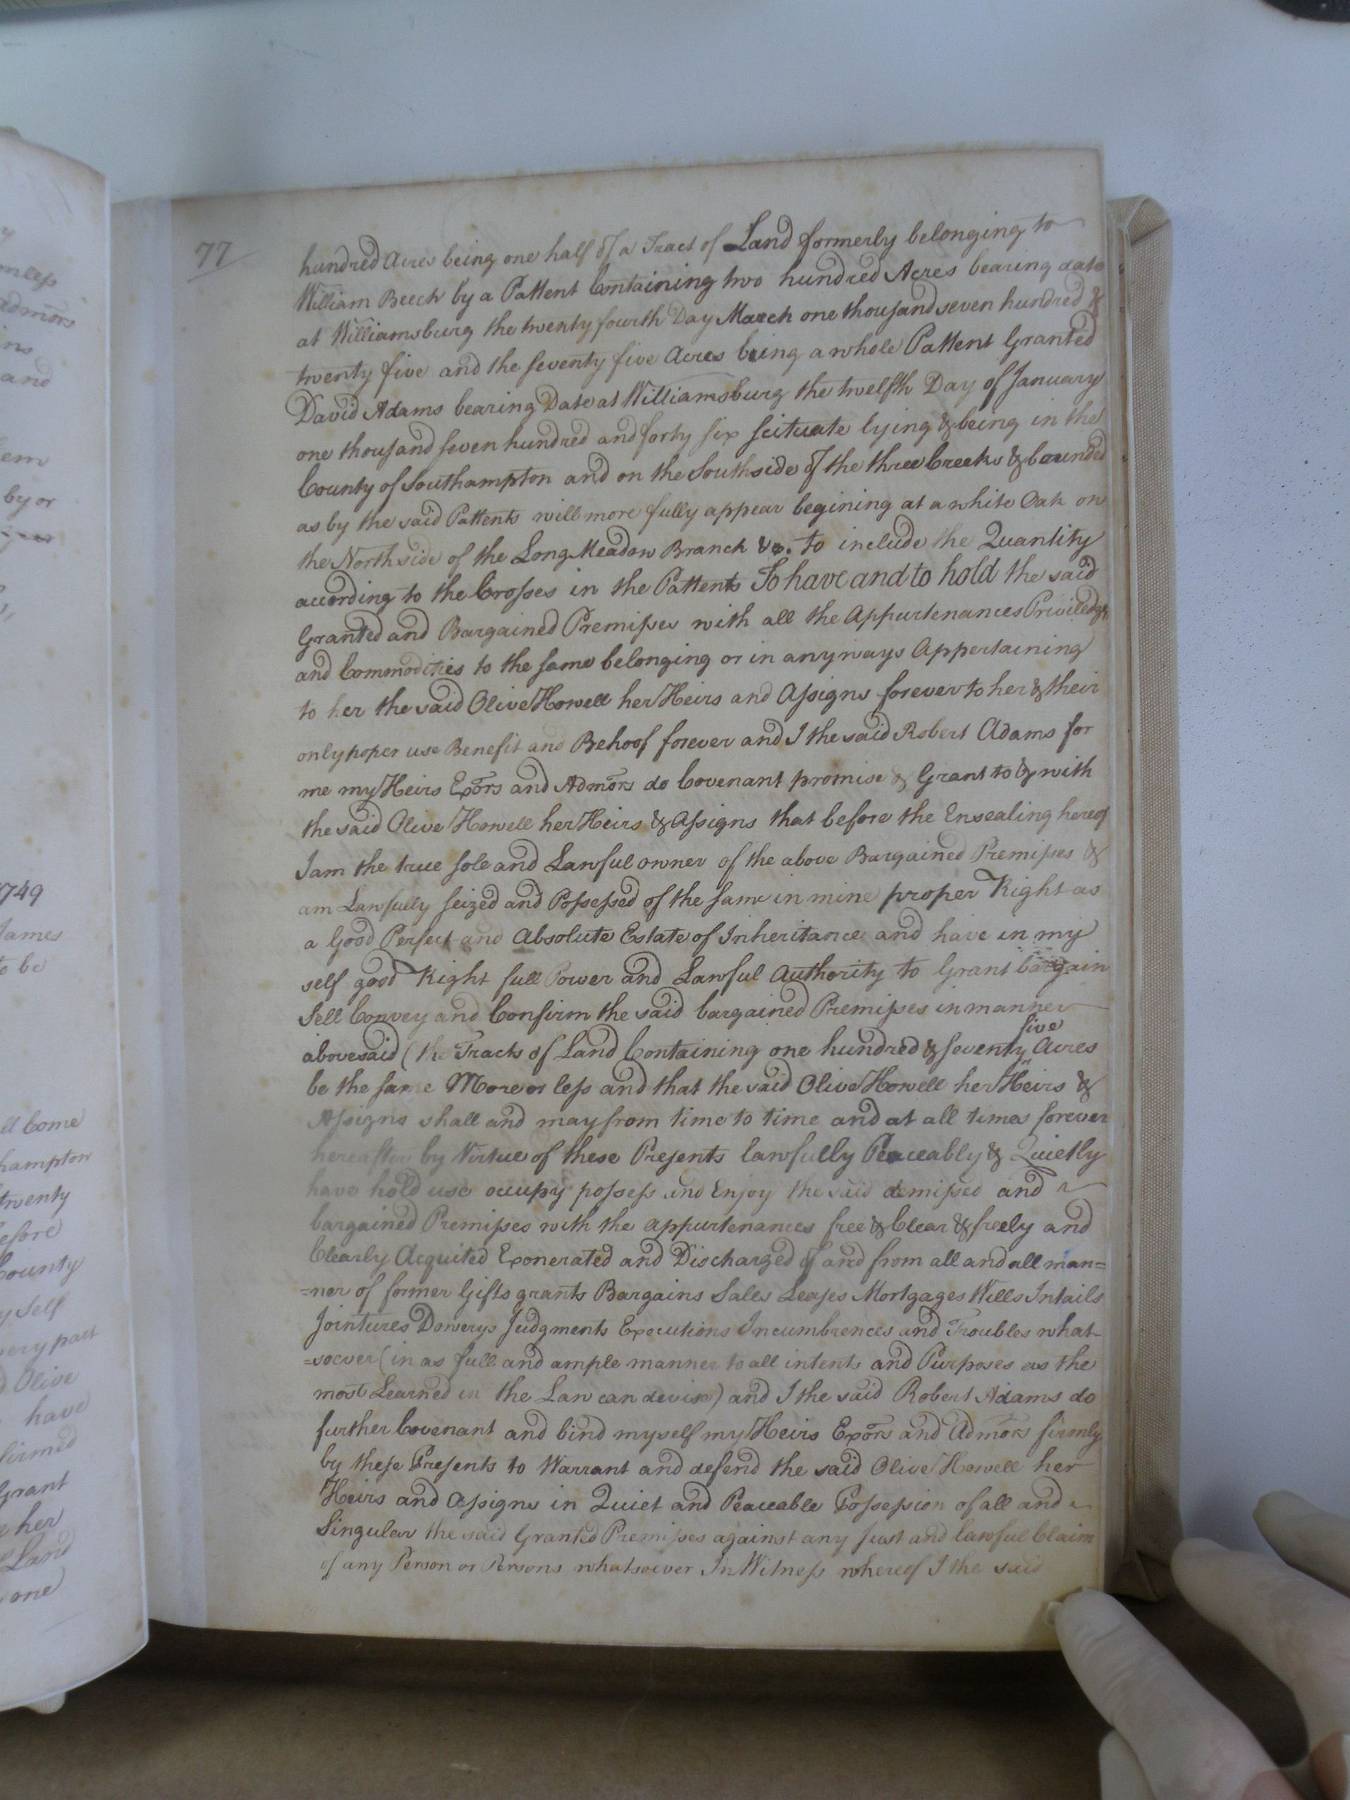 77
hundred Acres being one half of a Tract of Land formerly belonging to
William Beech by a Pattent Containing two hundred Acres bearing date
at Williamsburg the twenty fourth Day March one thousand seven hundred &
twenty five and the seventy five Acres being a whole Pattent Granted
David Adams bearing Date at Williamsburg the twelfth Day of January
one thousand seven hundred and forty six scituate lying & being in the
County of Southampton and on the Southside of the three Creeks & bounded
as by the said Pattents will more fully appear begining at a white Oak on
the North side of the Long Meadow Branch &c. to include the Quantity
according to the Crosses in the Pattents To have and to hold the said
Granted and Bargained Premisses with all the Appurtenances Priviledges
and Commodities to the same belonging or in anyways Appertaining
to her the said Olive Howell her Heirs and Assigns forever to her & their
only poper use Benefit and Behoof forever and I the said Robert Adams for
me my Heirs Exors and Admors do Covenant promise & Grant to & with
the said Olive Howell her Heirs & Assigns that before the Ensealing hereof
I am the true sole and Lawful owner of the above Bargained Premisses &
am Lawfully seized and Possessed of the same in mine proper Right as
a Good Perfect and Absolute Estate of Inheritance and have in my
self good Right full Power and Lawful Authority to Grant bargain
Sell Convey and Confirm the said bargained Premisses in manner
abovesaid (the Tracts of Land Containing one hundred & seventy five Acres
be the same More or less and that the said Olive Howell her Heirs &
Assigns shall and may from time to time and at all times forever
hereafter by Virtue of these Presents lawfully Peaceably & Quietly
have hold use occupy possess and Enjoy the said demissed and
bargained Premisses with the appurtenances free & Clear & freely and
Clearly Acquited Exonerated and Discharged of and from all and all man=
=ner of former Gifts grants Bargains Sales Leases Mortgages Wills Intails
Jointures Dowerys Judgments Executions Incumbrences and Troubles what-
=soever (in as full and ample manner to all intents and Purposes as the
most Learned in the Law can devise) and I the said Robert Adams do
further Covenant and bind myself my Heirs Exors and Admors firmly
by these Presents to Warrant and defend the said Olive Howell her
Heirs and Assigns in Quiet and Peaceable Possession of all and
Singular the said Granted Premisses against any just and lawful Claim
of any Person or Persons whatsoever In Witness whereof I the said
admors
and
by or
1749
James
to be
Come
twenty
before
County
my Self
every part
Olive
have
Grant
her
Land
one